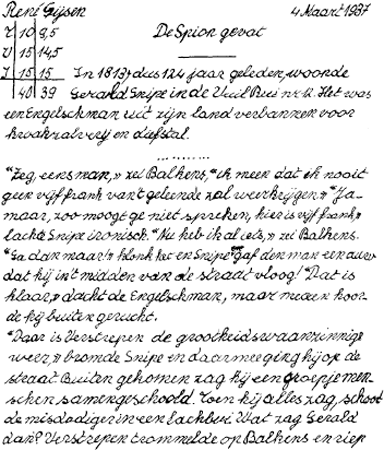 René Gijsen 4 Maart 1937
T 10 9,5 De Spion gevat
V 15 14,5
I 15 15 In 1813, dus 124 jaar geleden, woonde
40 39 Gerald Snipe in de Vuil Rui nr 12. Het was
een Engelschman uit zijn land verbannen voor
kwakzalverij en diefstal.
..........
"Zeg, eens man," zei Balhens, "ik meen dat ik nooit
geen vijf frank van 't geleende zal weerkrijgen." "Ja-
maar, zoo moogt ge niet spreken, hier is vijf frank,"
lachte Snipe ironisch. "Nu heb ik al iets," zei Balhens.
"Ga dan maar!" klonk het en Snipe gaf den man een duw
dat hij in 't midden van de straat vloog! "Dat is
klaar," dacht de Engelschman, maar meteen hoor-
de hij buiten gerucht.
"Daar is Verstrepen de grootheidswaanzinnige
weer," bromde Snipe en daarmee ging hij op de
straat. Buiten gekomen zag hij een groepje men-
schen samengeschoold. Toen hij alles zag, schoot
de misdadiger in een lachbui. Wat zag Gerald
dan? Verstrepen trommelde op Balhens en riep